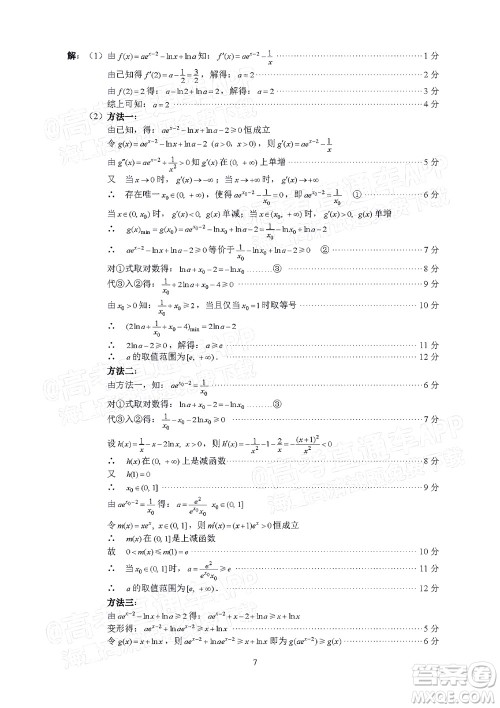 解：（1）由 f(x)=ae^{x-2}-lnx+lna 知：f′(x)=ae^{x-2}-1/x ……1 分
由已知得 f′(2)=a-1/2=3/2，解得：a=2 ……2 分
由 f(2)=2 得：a-ln2+lna=2，解得：a=2 ……3 分
综上可知：a=2 ……4 分
（2）方法一：
由已知，得：ae^{x-2}-lnx+lna-2≥0 恒成立
令 g(x)=ae^{x-2}-lnx+lna-2（a>0，x>0），则 g′(x)=ae^{x-2}-1/x
由 g″(x)=ae^{x-2}+1/x²>0 知 g′(x) 在 (0, +∞) 上单增 ……5 分
又 当 x→0 时，g′(x)→-∞；当 x→+∞ 时，g′(x)→+∞
∴ 存在唯一 x₀∈(0, +∞)，使得 ae^{x₀-2}-1/x₀=0，即 ae^{x₀-2}=1/x₀ ① ……6 分
当 x∈(0, x₀) 时，g′(x)<0，g(x) 单减；当 x∈(x₀, +∞) 时，g′(x)>0，g(x) 单增
∴ g(x)min=g(x₀)=ae^{x₀-2}-lnx₀+lna-2=1/x₀-lnx₀+lna-2
∴ ae^{x-2}-lnx+lna-2≥0 等价于 1/x₀-lnx₀+lna-2≥0 ② ……7 分
对①式取对数得：lna+x₀-2=-lnx₀ ………③ ……8 分
代③入②得：1/x₀+2lna+x₀-4≥0 ……9 分
由 x₀>0 可知：1/x₀+x₀≥2，当且仅当 x₀=1 时取等号 ……10 分
∴ (2lna+1/x₀+x₀-4)min=2lna-2
∴ 2lna-2≥0，解得：a≥e ……11 分
∴ a 的取值范围为[e, +∞). ……12 分
方法二：
由方法一，知：ae^{x₀-2}=1/x₀ ……6 分
对①式取对数得：lna+x₀-2=-lnx₀ ………③
代③入②得：1/x₀-x₀-2lnx₀≥0 ……7 分
设 h(x)=1/x-x-2lnx，x>0，则 h′(x)=-1/x²-1-2/x=-(x+1)²/x²<0
∴ h(x) 在 (0, +∞) 上是减函数 ……8 分
又 h(1)=0
∴ x₀∈(0, 1] ……9 分
由 ae^{x₀-2}=1/x₀ 得：a=e²/(e^{x₀}x₀)
令 m(x)=xe^x，x∈(0, 1]，则 m′(x)=(x+1)e^x>0 恒成立
∴ m(x) 在 (0, 1] 上是减函数
故 0<m(x)≤m(1)=e ……10 分
∴ 当 x₀∈(0, 1] 时，a=e²/(e^{x₀}x₀)≥e ……11 分
∴ a 的取值范围为[e, +∞). ……12 分
方法三：
由 ae^{x-2}-lnx+lna≥2 得：ae^{x-2}+x-2+lna≥lnx+x ……4 分
变形得：ae^{x-2}+lnae^{x-2}≥x+lnx ……5 分
令 g(x)=x+lnx，则 ae^{x-2}+lnae^{x-2}≥x+lnx 即为 g(ae^{x-2})≥g(x) ……6 分
7